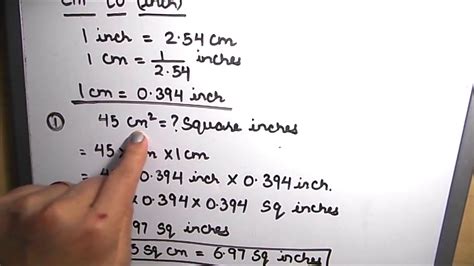 cm to (inch)
1 inch = 2.54 cm
1 cm = 1/2.54 inches
1 cm = 0.394 inch
① 45 cm² = ? Square inches
= 45 x 1 cm
= 0.394 inch x 0.394 inch.
x 0.394 x 0.394 Sq inches
97 Sq inches
5 Sq cm = 6.97 Sq inches